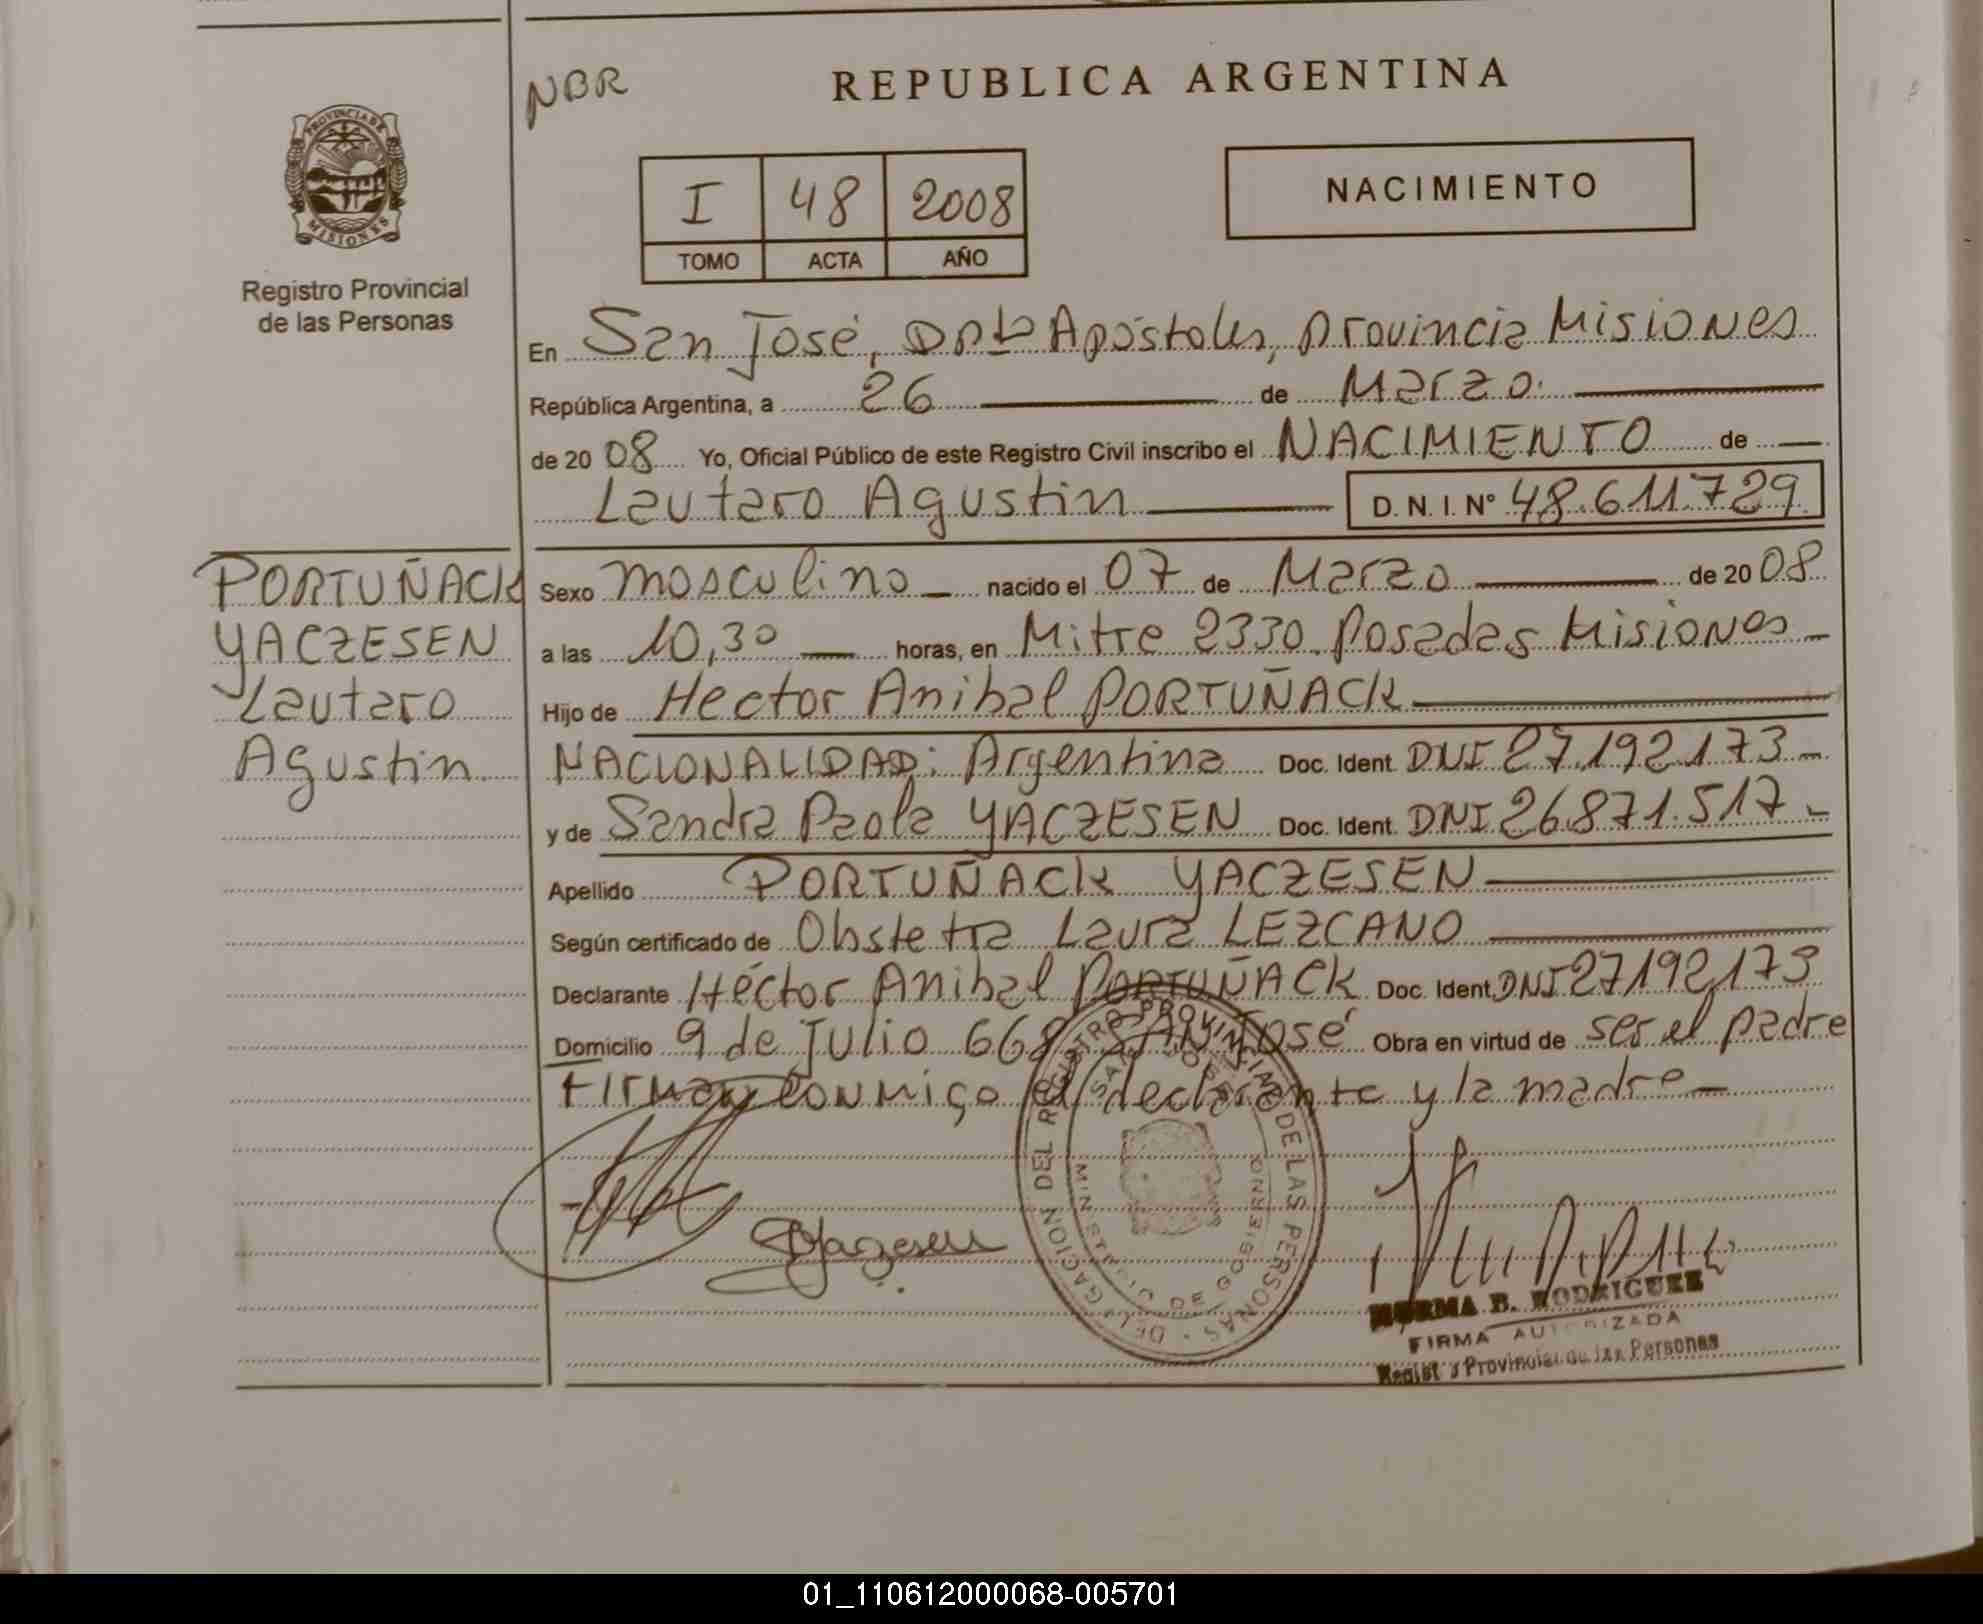 NBR
REPUBLICA ARGENTINA
PROVINCIA DE
MISIONES
Registro Provincial
de las Personas
I 48 2008
TOMO ACTA AÑO
NACIMIENTO
En San José, Dpto Apóstoles, provincia Misiones
República Argentina, a 26 de Marzo.
de 20 08 Yo, Oficial Público de este Registro Civil inscribo el NACIMIENTO de
Lautaro Agustin D. N. I. Nº 48.611.729
PORTUÑACK
YACZESEN
Lautaro
Agustin
Sexo masculino nacido el 07 de Marzo de 20 08
a las 10,30 horas, en Mitre 2330. Posadas Misiones
Hijo de Hector Anibal PORTUÑACK
NACIONALIDAD: Argentina Doc. Ident. DNI 27.192.173
y de Sandra Paola YACZESEN Doc. Ident. DNI 26.871.517
Apellido PORTUÑACK YACZESEN
Según certificado de Obstetra Laura LEZCANO
Declarante Héctor Anibal PORTUÑACK Doc. Ident. DNI 27192173
Domicilio 9 de Julio 668 SAN José Obra en virtud de ser el padre
Firman conmigo el declarante y la madre
DELEGACION DEL REGISTRO PROVINCIAL DE LAS PERSONAS
SAN JOSE
MINISTERIO DE GOBIERNO
Yaczesen
NORMA B. RODRIGUEZ
FIRMA AUTORIZADA
Registro Provincial de las Personas
01_110612000068-005701